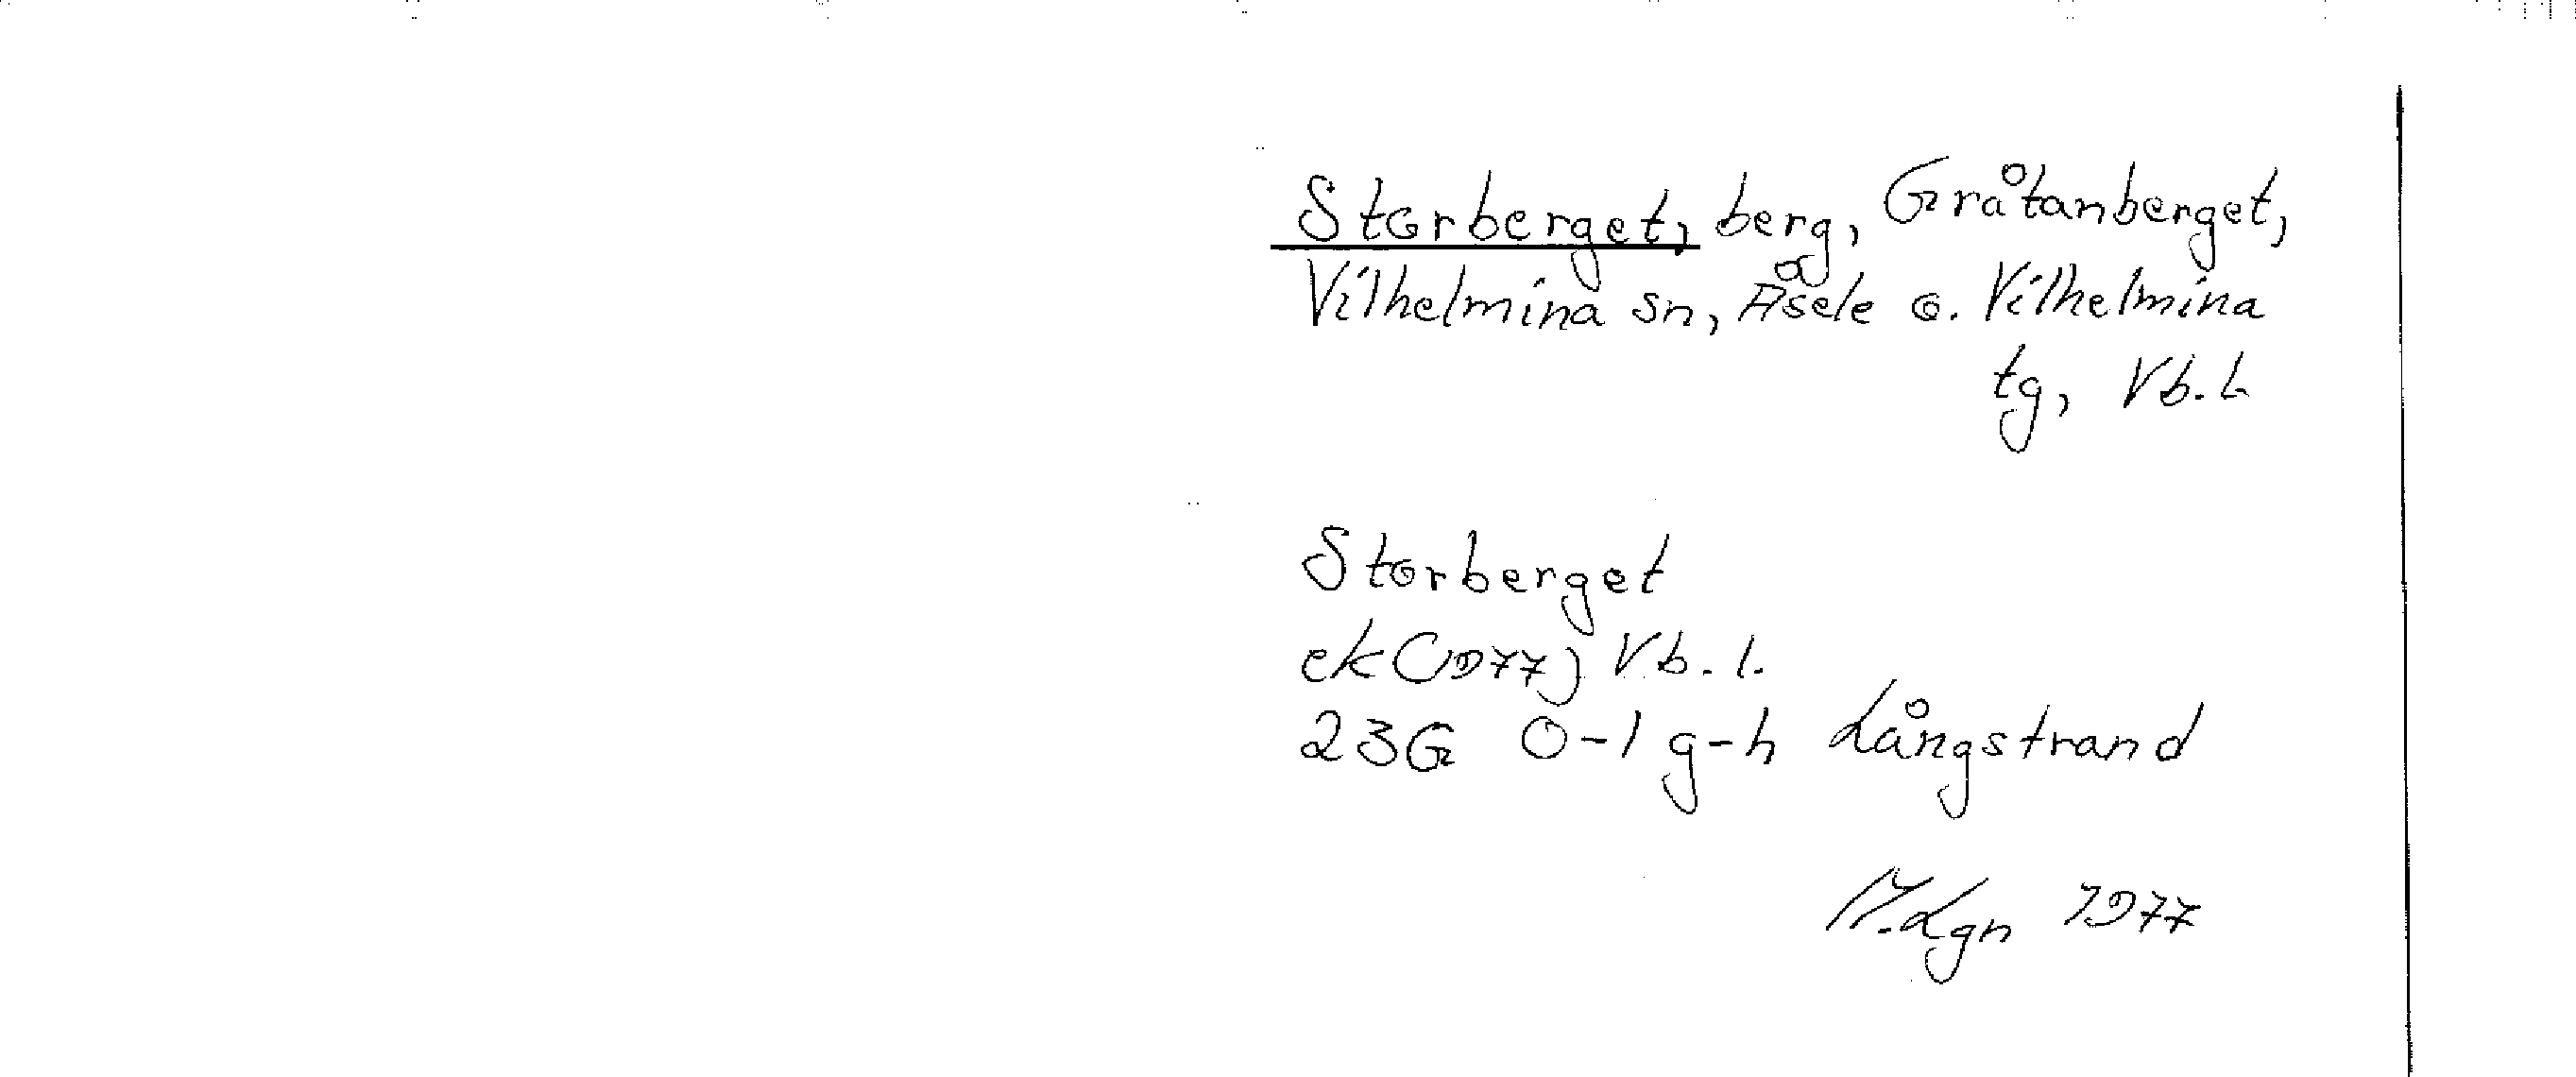 Storberget, berg, Gråtanberget,
Vilhelmina sn, Åsele o. Vilhelmina
tg, Vb. L
Storberget
ek (1977) Vb. l.
23G 0-1 g-h Långstrand
M.Lgn 1977